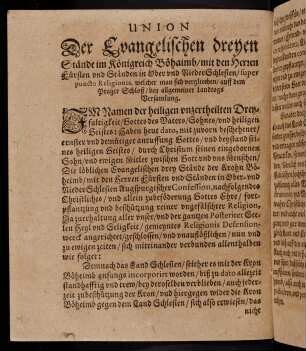 UNION
Der Evangelischen dreyen
Stände im Königreich Böhaimb/ mit den Herren
Fürsten und Ständen in Ober und NiederSchlesien/ super
puncto Religionis, welcher man sich verglichen/ auff dem
Prager Schloß/ bey allgemeiner Landtags
Versamlung.
IM Namen der heiligen unzertheilten Drey-
faltigkeit/ Gottes des Vaters/ Sohnes/ und heiligen
Geistes: Haben heut dato, mit zuvorn beschehener/
ernster und demütiger anruffung Gottes/ und beystand sei-
nes heiligen Geistes/ durch Christum seinen eingebornen
Sohn/ und ewigen Mitler zwischen Gott und uns Menschen/
Die löblichen Evangelischen drey Stände der Cronen Bö-
heimb/ mit den Herren Fürsten und Ständen in Ober- und
NiederSchlesien Augspurgischer Confession, nachfolgendes
Christliches/ und allein zubeförderung Gottes Ehre/ fort-
pflantzung und beschützung reiner ungefälschter Religion,
Zu zuerhaltung aller unser/ und der gantzen Posteritet See-
len Heyl und Seligkeit/ gemeyntes Religionis Defension-
werck angerichtet/ geschlossen/ und unaufflößlichen/ nun und
zu ewigen zeiten/ sich miteinander verbunden allenthalben
wie folget:
Demnach das Land Schlesien/ seither es mit der Kron
Böheimb anfangs incorporirt worden/ biß zu dato allezeit
standhafftig und trew/ bey derselben verblieben/ auch jeder-
zeit zubeschützung der Kron/ und hiergegen wider die Kron
Böheimb gegen dem Land Schlesien/ sich also erwiesen/ das
nicht